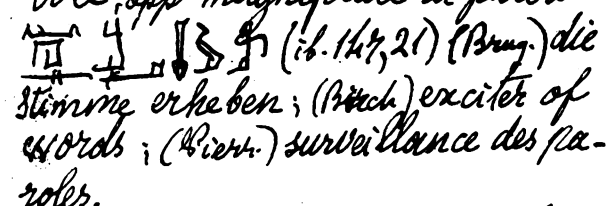 (ib. 147,21) (Brug.) die
stimme erheben; (Birch) exciter of
words; (Pierr.) surveillance des pa-
roles.